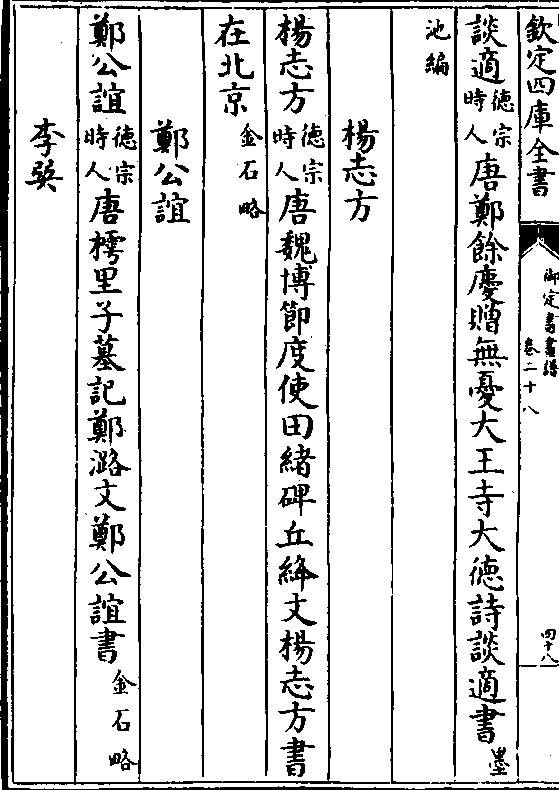 欽定四庫全書
御定書畫譜
卷二十八
四十八
談適德宗時人唐鄭餘慶贈無憂大王寺大德詩談適書墨
池編
楊志方
楊志方德宗時人唐魏博節度使田緒碑丘絳文楊志方書
在北京金石略
鄭公誼
鄭公誼德宗時人唐樗里子墓記鄭潞文鄭公誼書金石略
李巽